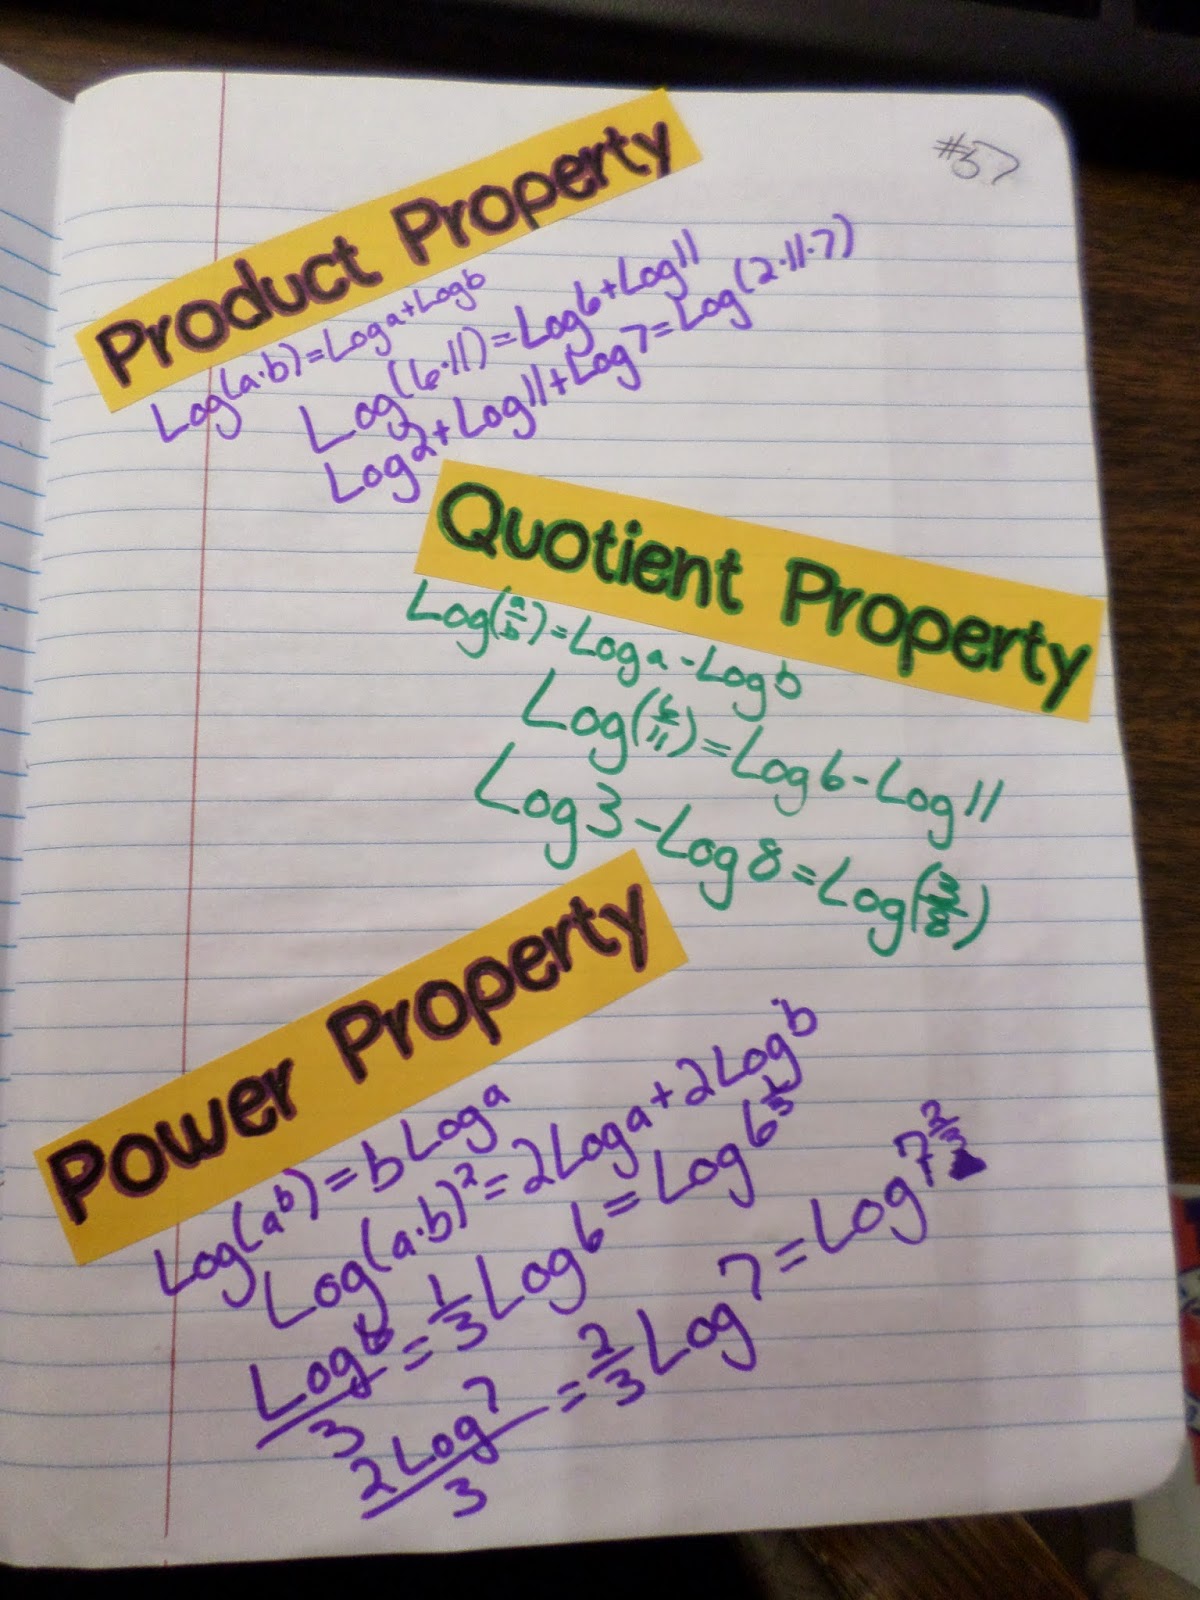 #37
Product Property
Log(a·b)=Loga+Logb
Log(6·11)=Log6+Log11
Log2+Log11+Log7=Log(2·11·7)
Quotient Property
Log(a/b)=Loga-Logb
Log(6/11)=Log6-Log11
Log3-Log8=Log(3/8)
Power Property
Log(a^b)=bLoga
Log(a·b)²=2Loga+2Logb
Log6/3=1/3Log6=Log6^1/3
2Log7/3=2/3Log7=Log7^2/3